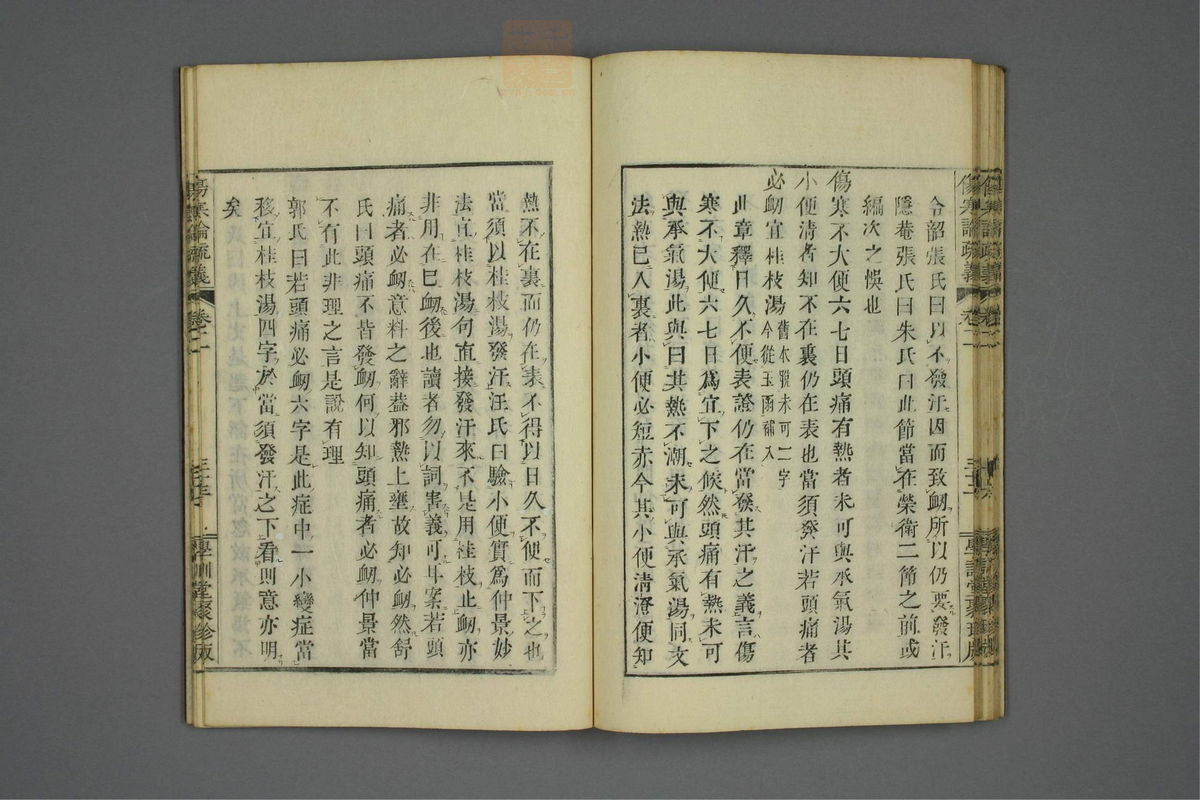 傷寒論疏義 卷二
令韶張氏曰以不發汗因而致衂所以仍要發汗
隱菴張氏曰朱氏曰此節當在榮衛二節之前或
編次之悞也
傷寒不大便六七日頭痛有熱者未可與承氣湯其
小便清者知不在裏仍在表也當須發汗若頭痛者
必衂宜桂枝湯舊本脫未可二字
今從玉函補入
此章釋日久不便表證仍在當發其汗之義言傷
寒不大便六七日爲宜下之候然頭痛有熱未可
與承氣湯此與曰其熱不潮未可與承氣湯同文
法熱已入裏者小便必短赤今其小便淸澄便知
熱不在裏而仍在表不得以日久不便而下之也
當須以桂枝湯發汗汪氏曰驗小便實爲仲景妙
法宜桂枝湯句直接發汗來不是用桂枝止衂亦
非用在巳衂後也讀者勿以詞害義可耳案若頭
痛者必衂意料之辭葢邪熱上壅故知必衂然舒
氏曰頭痛不皆發衂何以知頭痛者必衂仲景當
不有此非理之言是說有理
郭氏曰若頭痛必衂六字是此症中一小變症當
移宜桂枝湯四字於當須發汗之下看則意亦明
矣
傷寒論疏義 卷二 學訓堂聚珍版